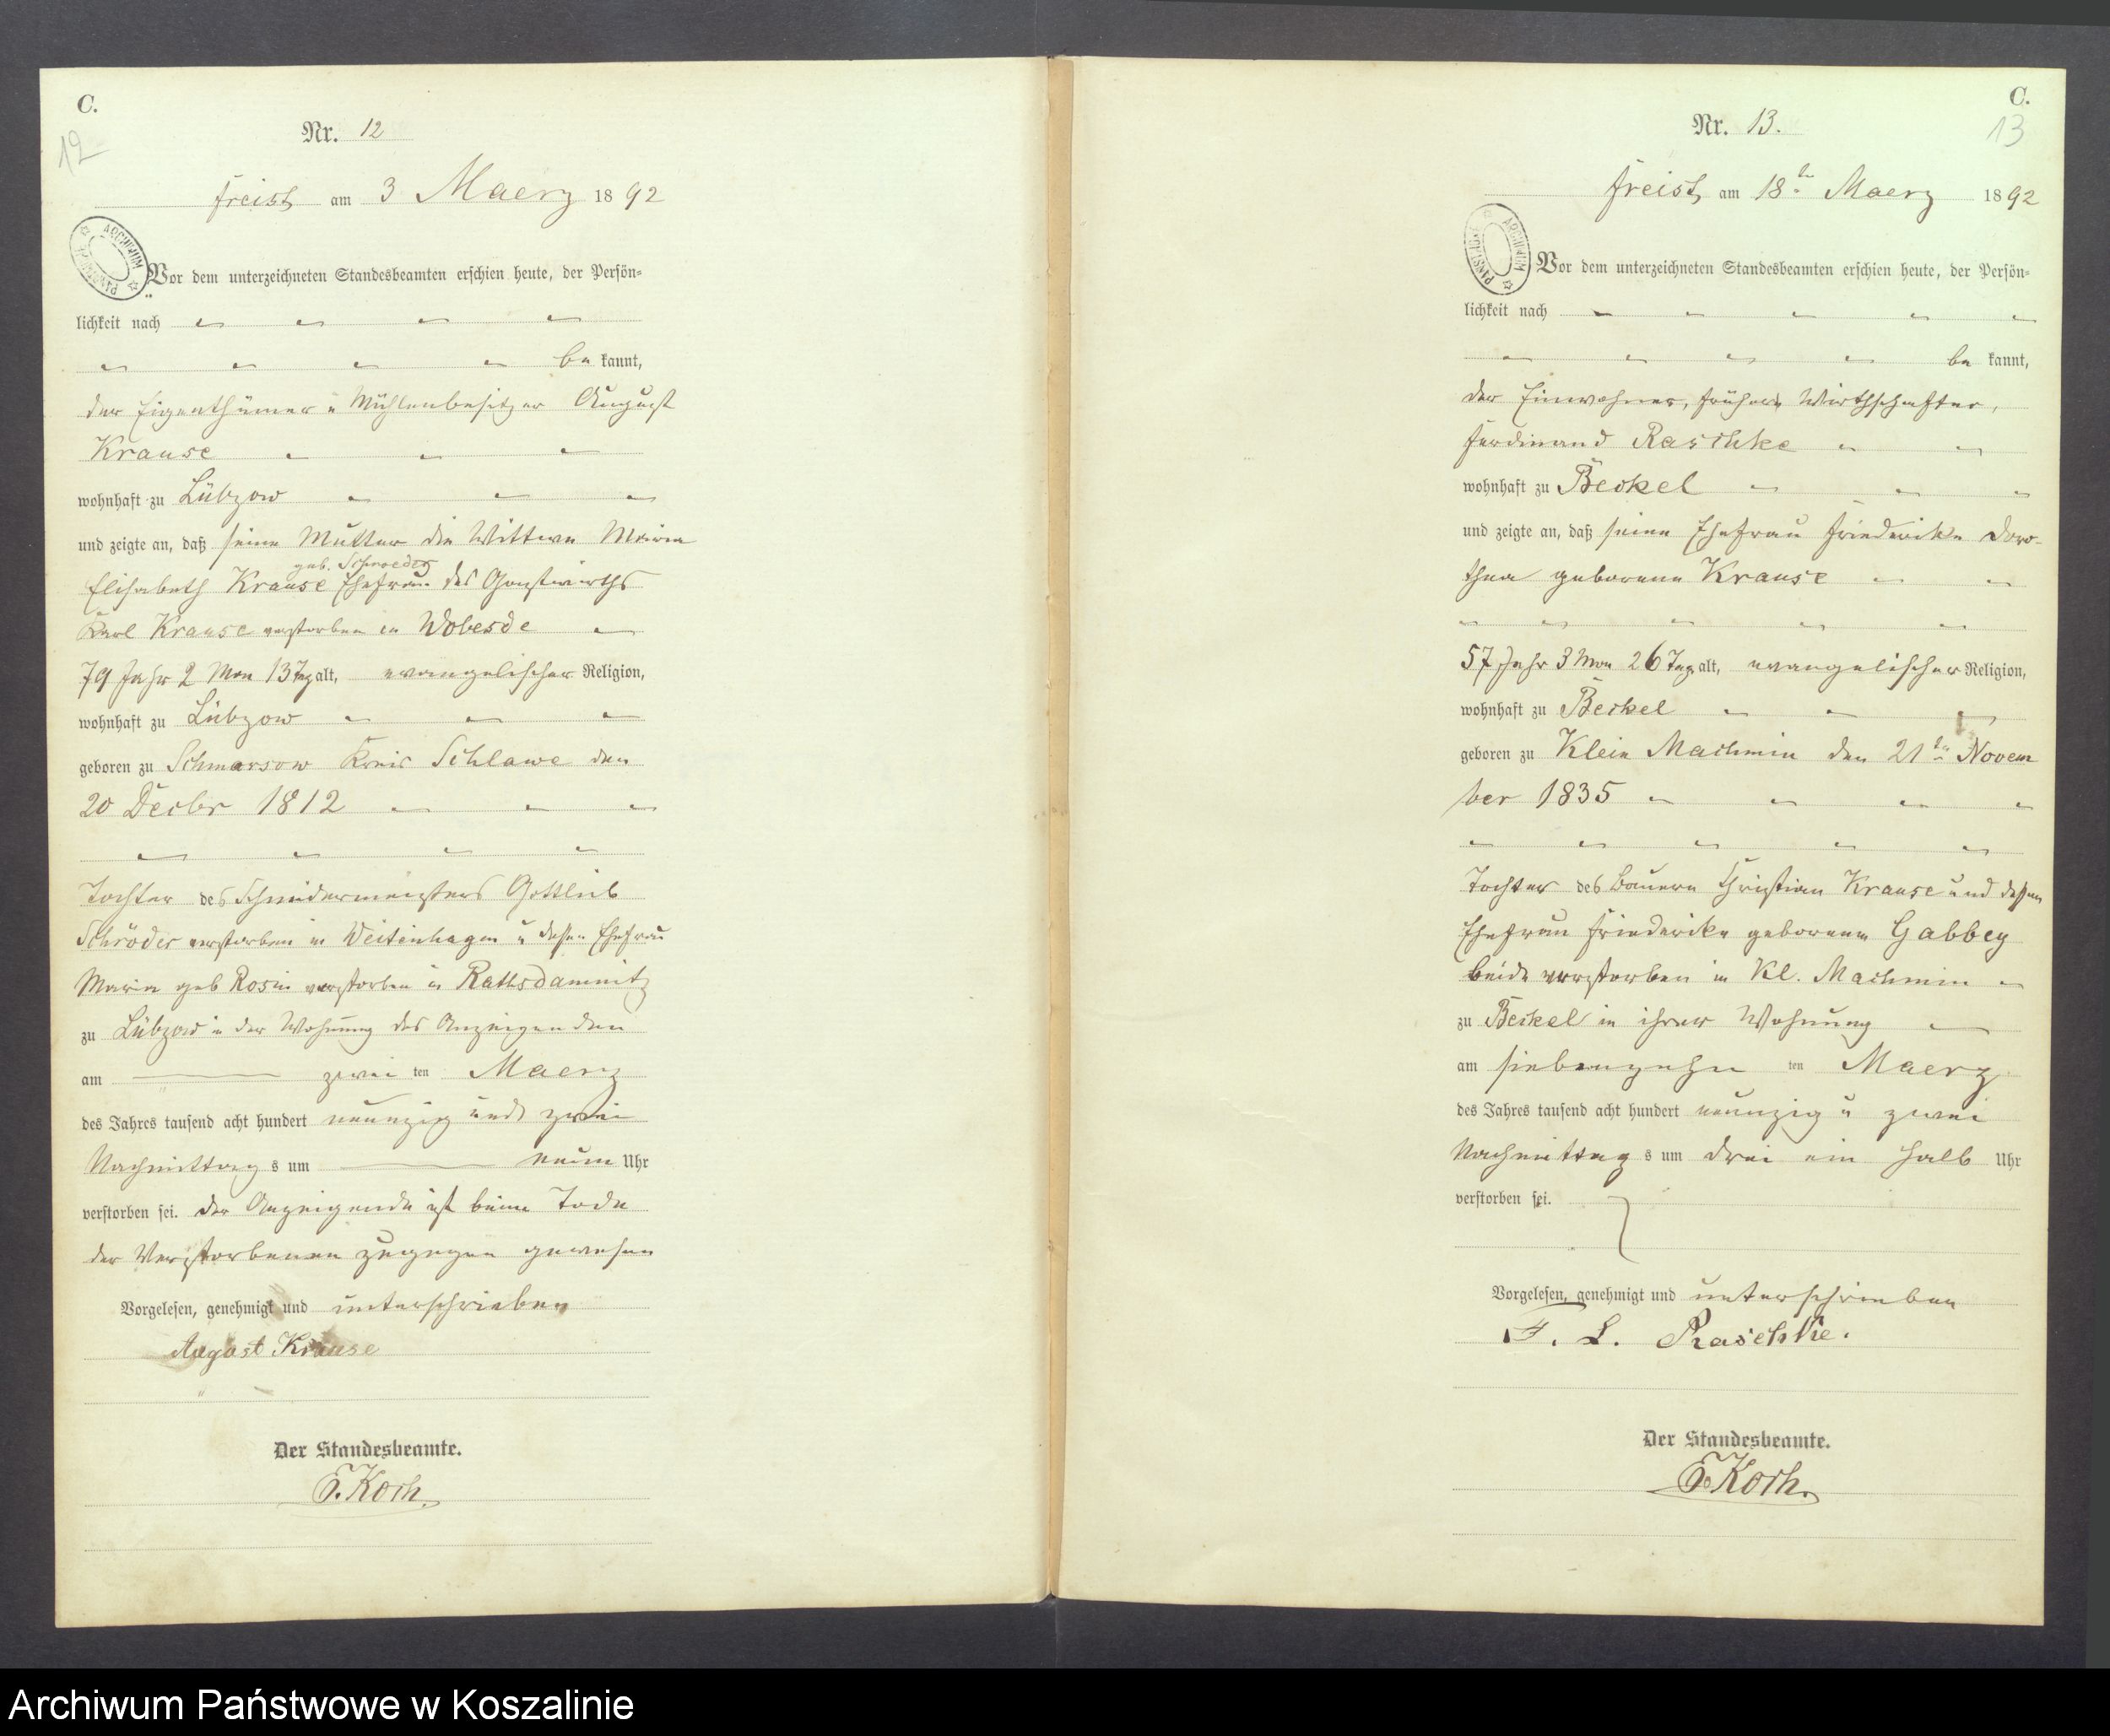 C.
12
Nr. 12
Freist am 3 Maerz 1892
ARCHIWUM PAŃSTWOWE
Vor dem unterzeichneten Standesbeamten erschien heute, der Persön-
lichkeit nach
be kannt,
der Eigenthümer u Mühlenbesitzer August
Krause
wohnhaft zu Lübzow
und zeigte an, daß seine Mutter die Wittwe Maria
geb. Schroeder
Elisabeth Krause Ehefrau des Gastwirths
Karl Krause verstorben in Wobesde
79 Jahr 2 Mon 13 Tag alt, evangelischer Religion,
wohnhaft zu Lübzow
geboren zu Schmarsow Kreis Schlawe den
20 Decbr 1812
Tochter des Schneidermeisters Gottlieb
Schröder verstorben in Weitenhagen u dessen Ehefrau
Maria geb Rosin verstorben in Rathsdamnitz
zu Lübzow in der Wohnung des Anzeigenden
am zwei ten Maerz
des Jahres tausend acht hundert neunzig und zwei
Nachmittag s um neun Uhr
verstorben sei. der Anzeigende ist beim Tode
der Verstorbenen zugegen gewesen
Vorgelesen, genehmigt und unterschrieben
August Krause
Der Standesbeamte.
Koch.
C.
13
Nr. 13.
Freist, am 18ten Maerz 1892
ARCHIWUM PAŃSTWOWE
Vor dem unterzeichneten Standesbeamten erschien heute, der Persön-
lichkeit nach
be kannt,
der Einwohner, früher Wirthschafter,
Ferdinand Raschke
wohnhaft zu Beckel
und zeigte an, daß seine Ehefrau Friederike Doro-
thea geborene Krause
57 Jahr 3 Mon 26 Tag alt, evangelischer Religion,
wohnhaft zu Beckel
geboren zu Klein Machmin den 21ten Novem
ber 1835
Tochter des Bauern Christian Krause und dessen
Ehefrau Friederike geborenen Gabbey
beide verstorben in Kl. Machmin
zu Beckel in ihrer Wohnung
am siebenzehn ten Maerz
des Jahres tausend acht hundert neunzig u zwei
Nachmittag s um drei ein halb Uhr
verstorben sei.
Vorgelesen, genehmigt und unterschrieben
F. L. Raschke.
Der Standesbeamte.
Koch.
Archiwum Państwowe w Koszalinie